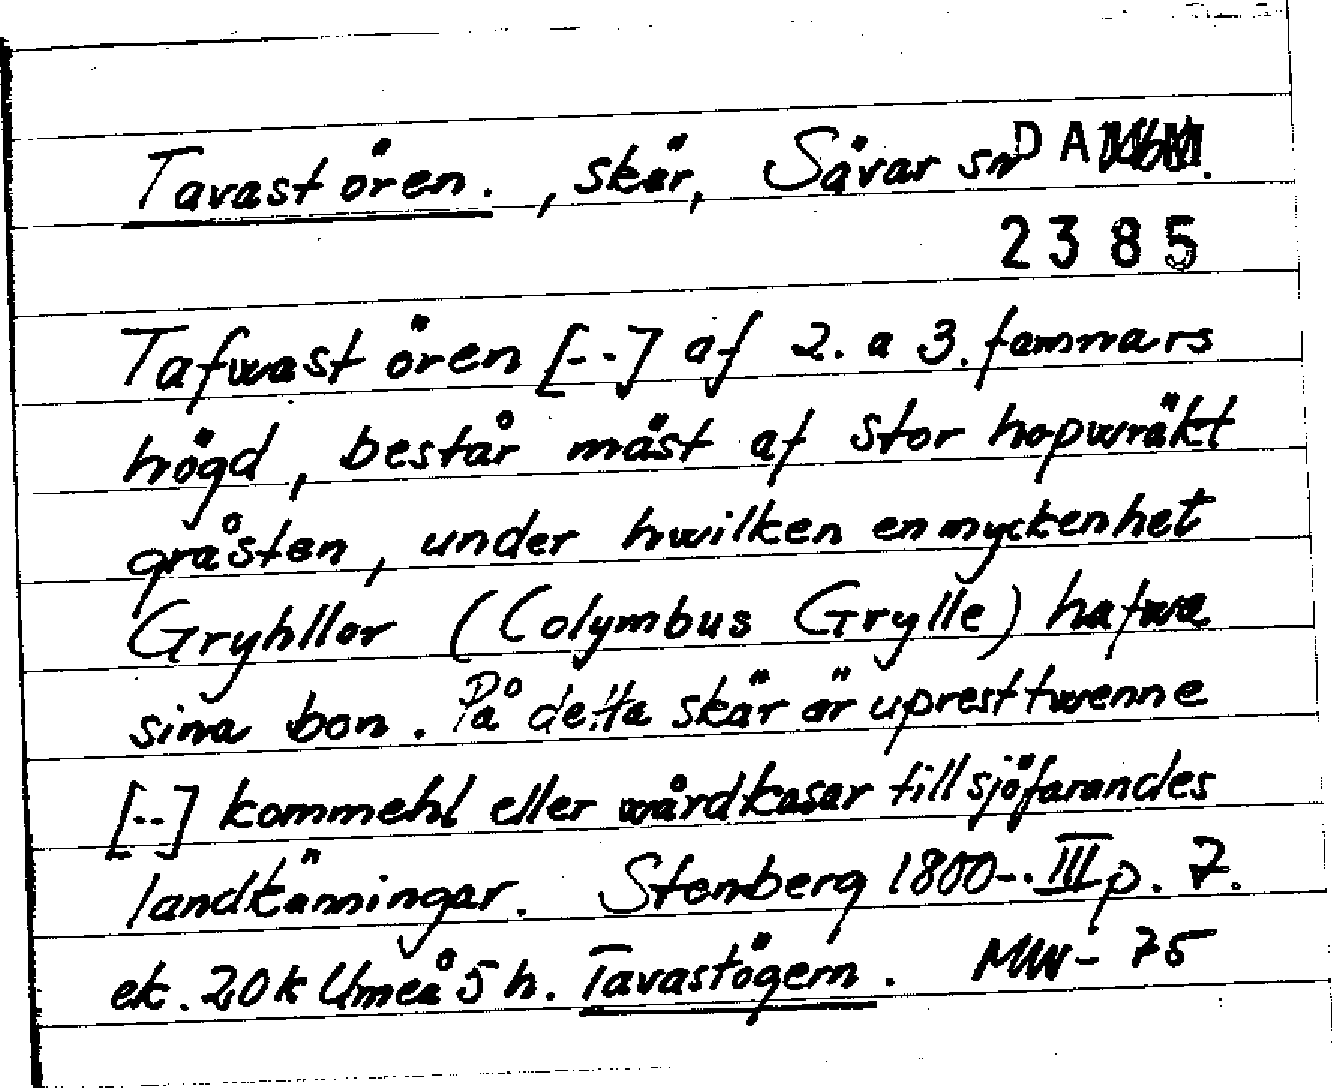 Tavastören., skär, Sävar sn DA
2385
Tafwast ören [--] af 2. a 3. famnars
högd, består mäst af stor hopwräkt
gråsten, under hwilken en myckenhet
Gryhllor (Colymbus Grylle) hafwa
sina bon. På detta skär är uprest twenne
[--] kommehl eller wårdkasar till sjöfarandes
landkänningar. Stenberg 1800-. III p. 7.
ek. 20k Umeå 5 h. Tavastögern. MW-75